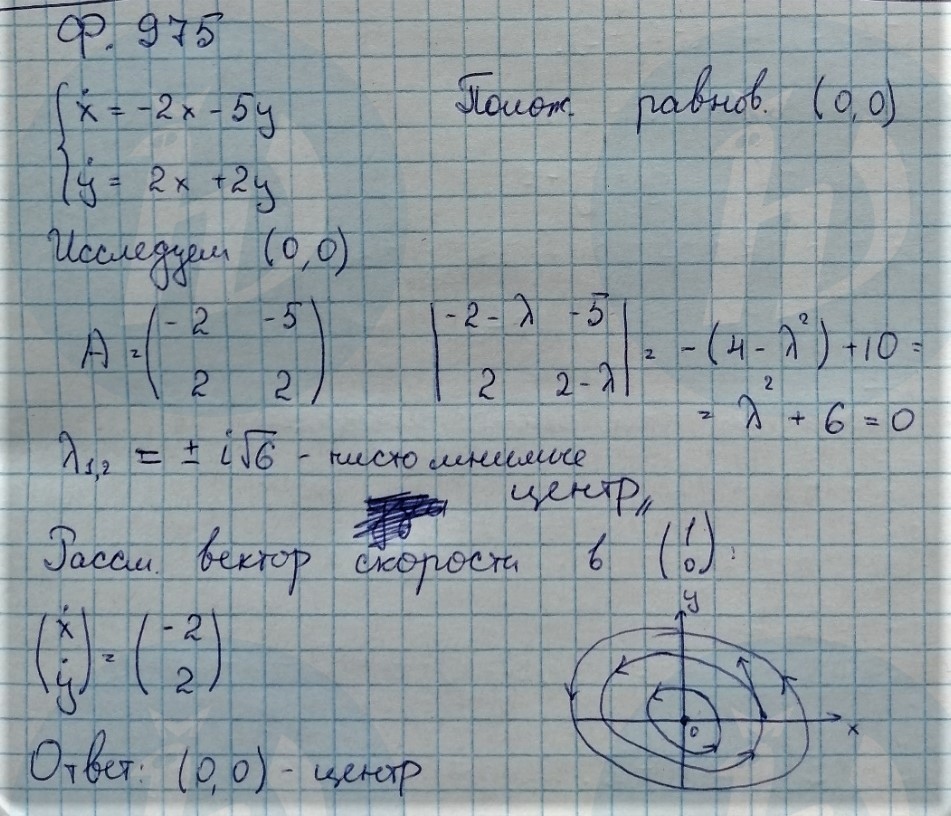 Ф. 975
{ẋ = -2x - 5y
Полож. равнов. (0,0)
{ẏ = 2x + 2y
Исследуем (0,0)
A = (-2 -5
2 2)
|-2-λ -5
2 2-λ| = -(4-λ²)+10 =
= λ² + 6 = 0
λ₁,₂ = ± i√6 - чисто мнимые
центр
Рассм. вектор скорости в (1 0):
(ẋ ẏ) = (-2 2)
y
0
x
Ответ: (0,0) - центр